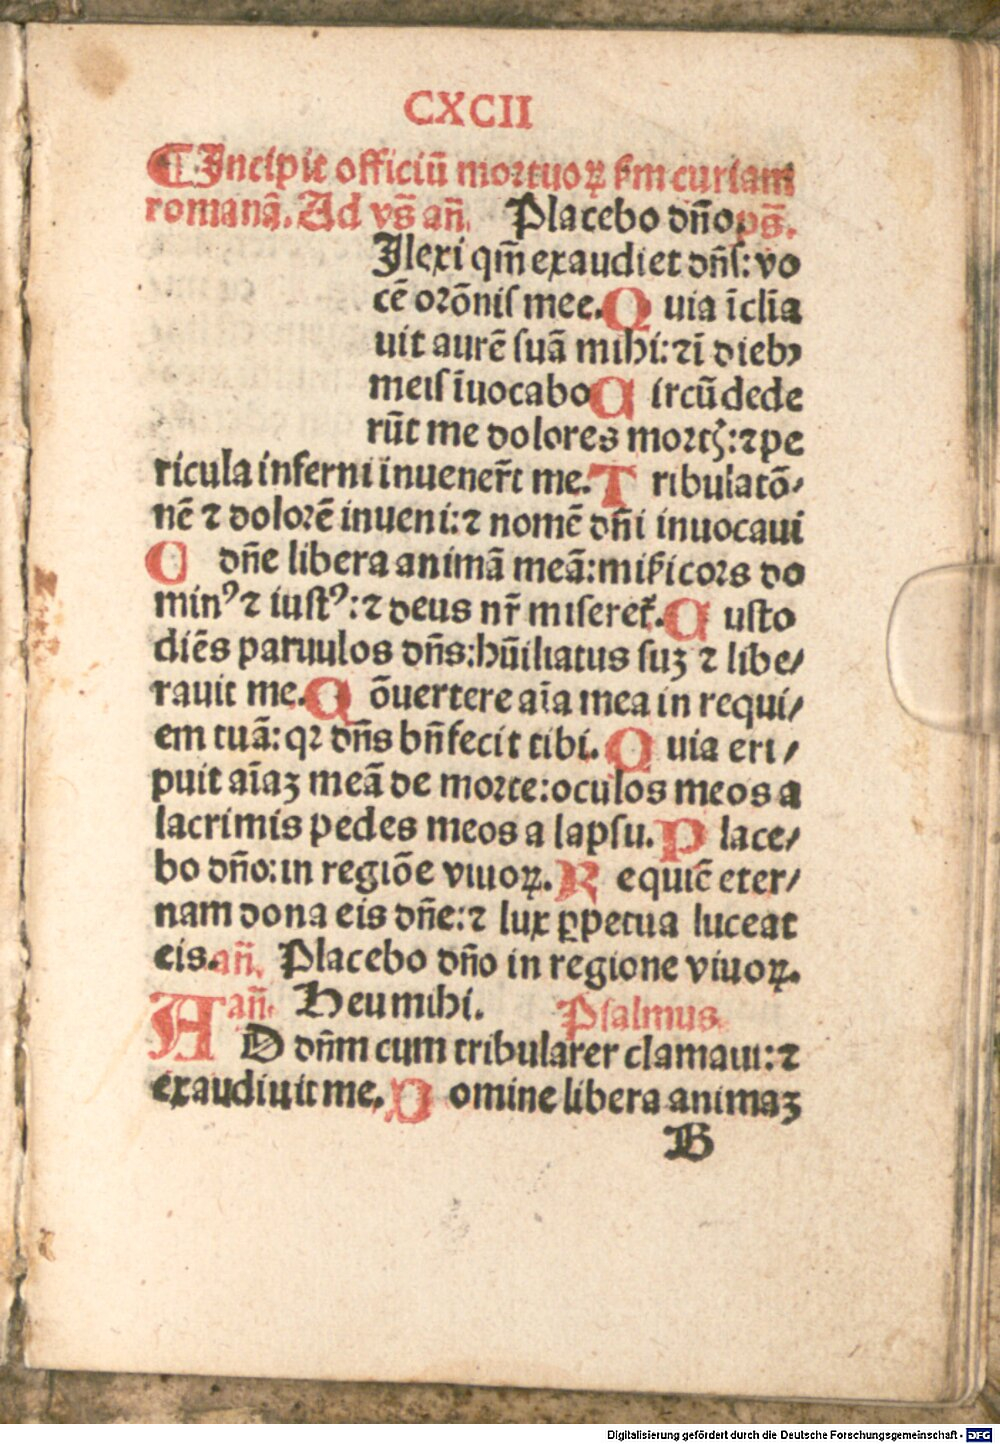 CXCII
¶ Incipit officiū mortuoꝝ ẜm curiam
romanā. Ad vs̄ an̄. Placebo dn̄o ps̄.
Ilexi qm̄ exaudiet dn̄s: vo
cē orōnis mee. Q uia īclīa
uit aurē suā mihi: ⁊ ī dieb⁹
meis īuocabo C ircūdede
rūt me dolores mortꝭ: ⁊ pe
ricula inferni inuener̄t me. T ribulatō⸗
nē ⁊ dolorē inueni: ⁊ nomē dn̄i inuocaui
O dn̄e libera animā meā: mīicors do
min⁹ ⁊ iust⁹: ⁊ deus nr̄ miseret᷑. C usto
diēs paruulos dn̄s: hūiliatus suꝫ ⁊ libe⸗
rauit me. C ōuertere aīa mea in requi⸗
em tuā: qꝛ dn̄s bn̄fecit tibi. Q uia eri⸗
puit aīaꝫ meā de morte: oculos meos a
lacrimis pedes meos a lapsu. P lace⸗
bo dn̄o: in regiōe viuoꝝ. R equiē eter⸗
nam dona eis dn̄e: ⁊ lux ꝑpetua luceat
eis. an̄. Placebo dn̄o in regione viuoꝝ.
an̄. Heu mihi. Psalmus
A D dn̄m cum tribularer clamaui: ⁊
exaudiuit me. D omine libera animaꝫ
B
Digitalisierung gefördert durch die Deutsche Forschungsgemeinschaft - DFG